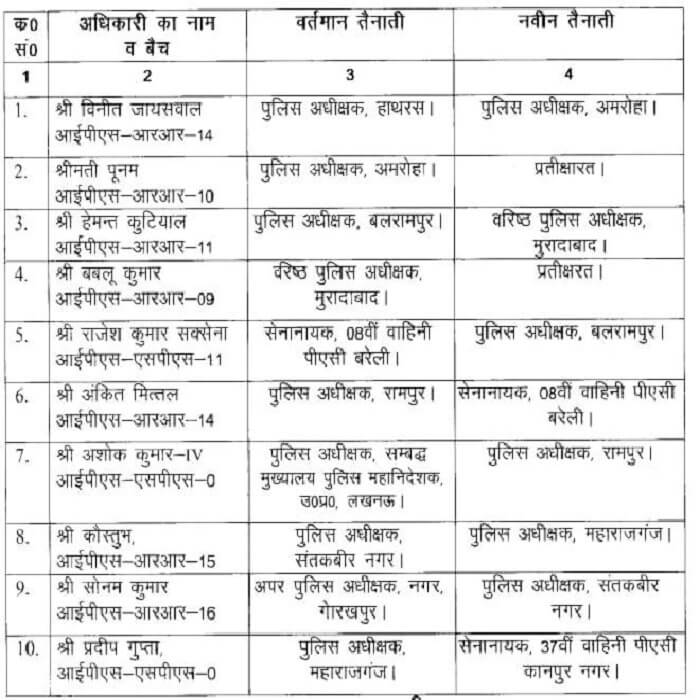 क्र0 सं0
अधिकारी का नाम व बैच
वर्तमान तैनाती
नवीन तैनाती
1
2
3
4
1.
श्री विनीत जायसवाल
आईपीएस–आरआर–14
पुलिस अधीक्षक, हाथरस।
पुलिस अधीक्षक, अमरोहा।
2.
श्रीमती पूनम
आईपीएस–आरआर–10
पुलिस अधीक्षक, अमरोहा।
प्रतीक्षारत।
3.
श्री हेमन्त कुटियाल
आईपीएस–आरआर–11
पुलिस अधीक्षक, बलरामपुर।
वरिष्ठ पुलिस अधीक्षक,
मुरादाबाद।
4.
श्री बबलू कुमार
आईपीएस–आरआर–09
वरिष्ठ पुलिस अधीक्षक,
मुरादाबाद।
प्रतीक्षरत।
5.
श्री राजेश कुमार सक्सेना
आईपीएस–एसपीएस–11
सेनानायक, 08वीं वाहिनी
पीएसी बरेली।
पुलिस अधीक्षक, बलरामपुर।
6.
श्री अंकित मित्तल
आईपीएस–आरआर–14
पुलिस अधीक्षक, रामपुर।
सेनानायक, 08वीं वाहिनी पीएसी
बरेली।
7.
श्री अशोक कुमार–IV
आईपीएस–एसपीएस–0
पुलिस अधीक्षक, सम्बद्ध
मुख्यालय पुलिस महानिदेशक,
उ0प्र0, लखनऊ।
पुलिस अधीक्षक, रामपुर।
8.
श्री कौस्तुभ,
आईपीएस–आरआर–15
पुलिस अधीक्षक,
संतकबीर नगर।
पुलिस अधीक्षक, महाराजगंज।
9.
श्री सोनम कुमार
आईपीएस–आरआर–16
अपर पुलिस अधीक्षक, नगर,
गोरखपुर।
पुलिस अधीक्षक, संतकबीर
नगर।
10.
श्री प्रदीप गुप्ता,
आईपीएस–एसपीएस–0
पुलिस अधीक्षक,
महाराजगंज।
सेनानायक, 37वीं वाहिनी पीएसी
कानपुर नगर।